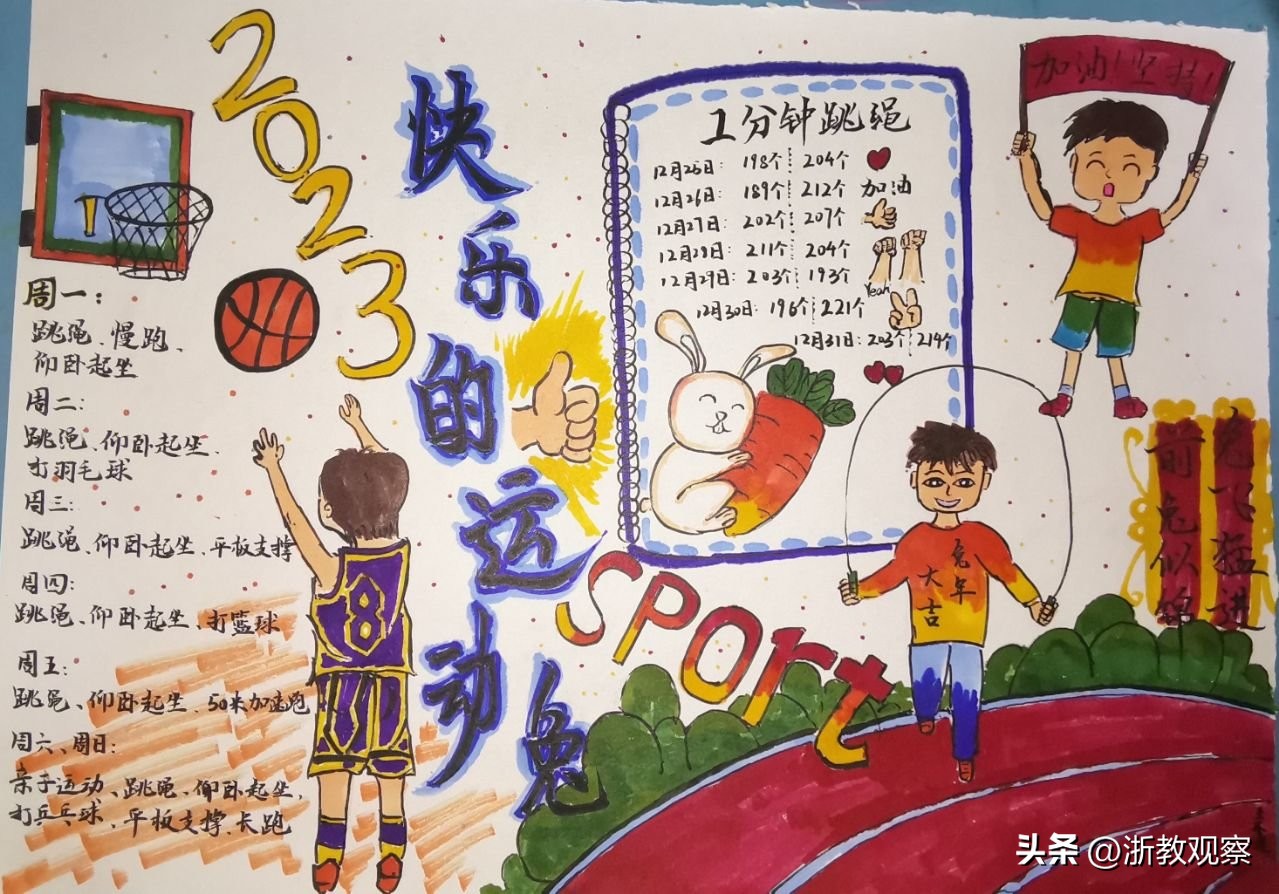 2023
快乐的运动兔
周一：
跳绳、慢跑、
仰卧起坐
周二：
跳绳、仰卧起坐、
打羽毛球
周三：
跳绳、仰卧起坐、平板支撑
周四：
跳绳、仰卧起坐、打篮球
周五：
跳绳、仰卧起坐、50米加速跑
周六、周日：
亲子运动、跳绳、仰卧起坐、
打乒乓球、平板支撑、长跑
8
1分钟跳绳
12月25日：198个 204个
12月26日：189个 212个 加油
12月27日：202个 207个
12月28日：211个 204个
12月29日：203个 193个
Yeah
12月30日：196个 221个
12月31日：203个 214个
sport
加油！坚持！
兔年
大吉
兔飞猛进
前兔似锦
头条 @浙教观察